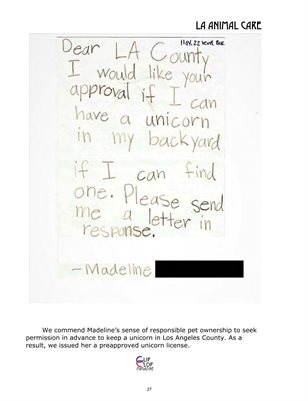 LA ANIMAL CARE
Dear LA County
I would like your
approval if I can
have a unicorn
in my backyard
if I can find
one. Please send
me a letter in
response.
- Madeline
We commend Madeline's sense of responsible pet ownership to seek
permission in advance to keep a unicorn in Los Angeles County. As a
result, we issued her a preapproved unicorn license.
27